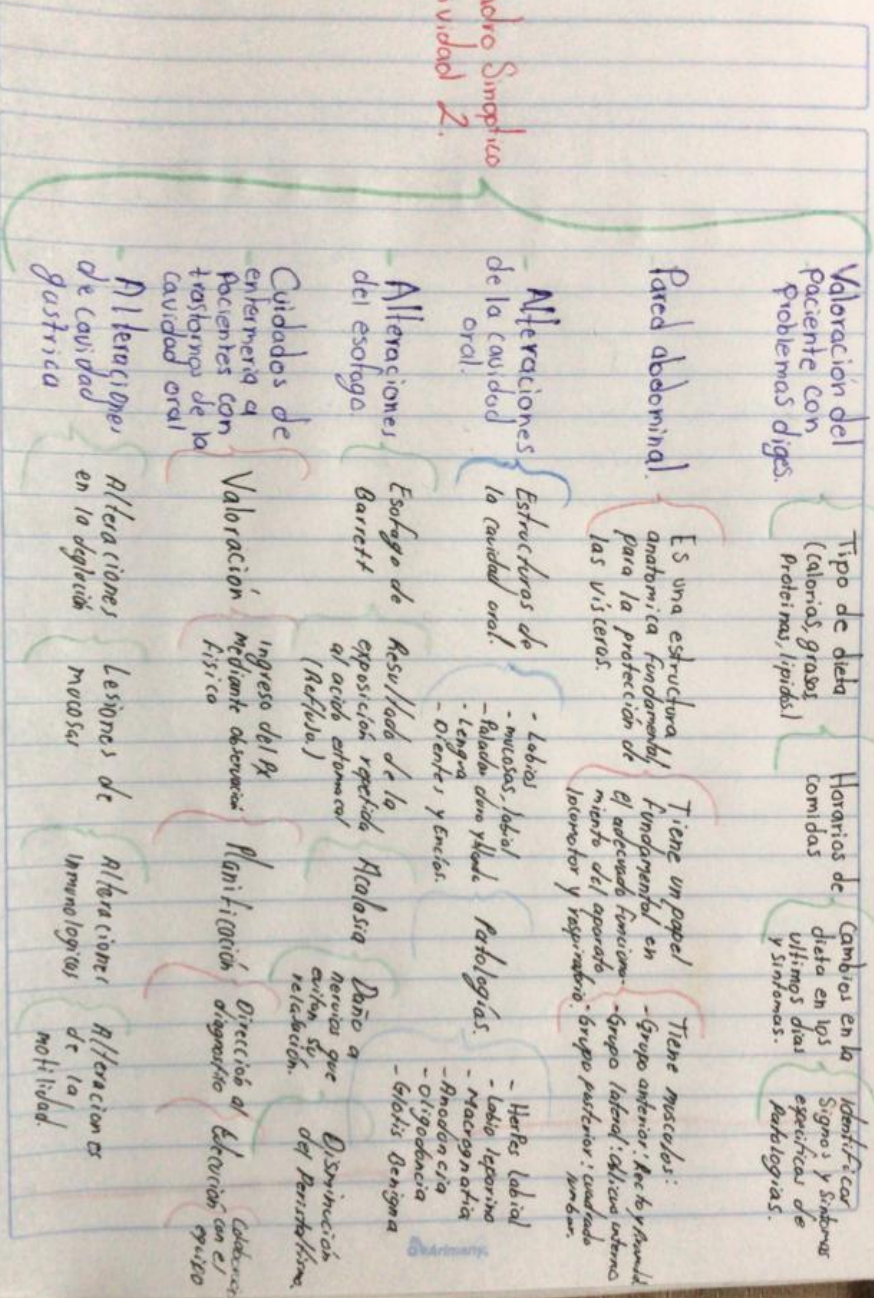 adro Sinoptico
vidad 2.
Valoración del
paciente con
problemas diges.
Tipo de dieta
(calorias, grasas
Proteinas, lipidos)
Horarios de
comidas
Cambios en la
dieta en los
ultimos dias
y sintomas.
identificar
Signos y Sintomas
especificos de
Patologias.
Pared abdominal.
Es una estructura
anatomica fundamental
para la protección de
las vísceras.
Tiene un papel
fundamental en
el adecuado funciona-
miento del aparato
locomotor y respiratorio.
Tiene musculos:
- Grupo anterior: Recto y
- Grupo lateral: oblicuo interno
- Grupo posterior: cuadrado
lumbar.
- Alteraciones
de la cavidad
oral.
Estructuras de
la cavidad oral.
- Labios
- mucosas, labial
- Paladar duro y blando
- Lengua
- Dientes y Encías.
Patologías.
- Herpes labial
- Labio leporino
- Macrognatia
- Anodoncia
- Oligodoncia
- Glotis Benigna
- Alteraciones
del esofago.
Esofago de
Barrett
Resultado de la
exposición repetida
al acido estomacal
(Reflujo)
Acalasia
Daño a
nervios que
evitan su
relajación.
Disminución
del Peristaltismo.
Cuidados de
enfermería a
Pacientes con
trastornos de la
cavidad oral
Valoración
ingreso del Px
mediante observación
físico
Planificación
Dirección al
diagnostico
Ejecución
con el
equipo
- Alteraciones
de cavidad
gastrica
Alteraciones
en la deglución
Lesiones de
mucosas
Alteraciones
Inmunologicas
Alteraciones
de la
motilidad.